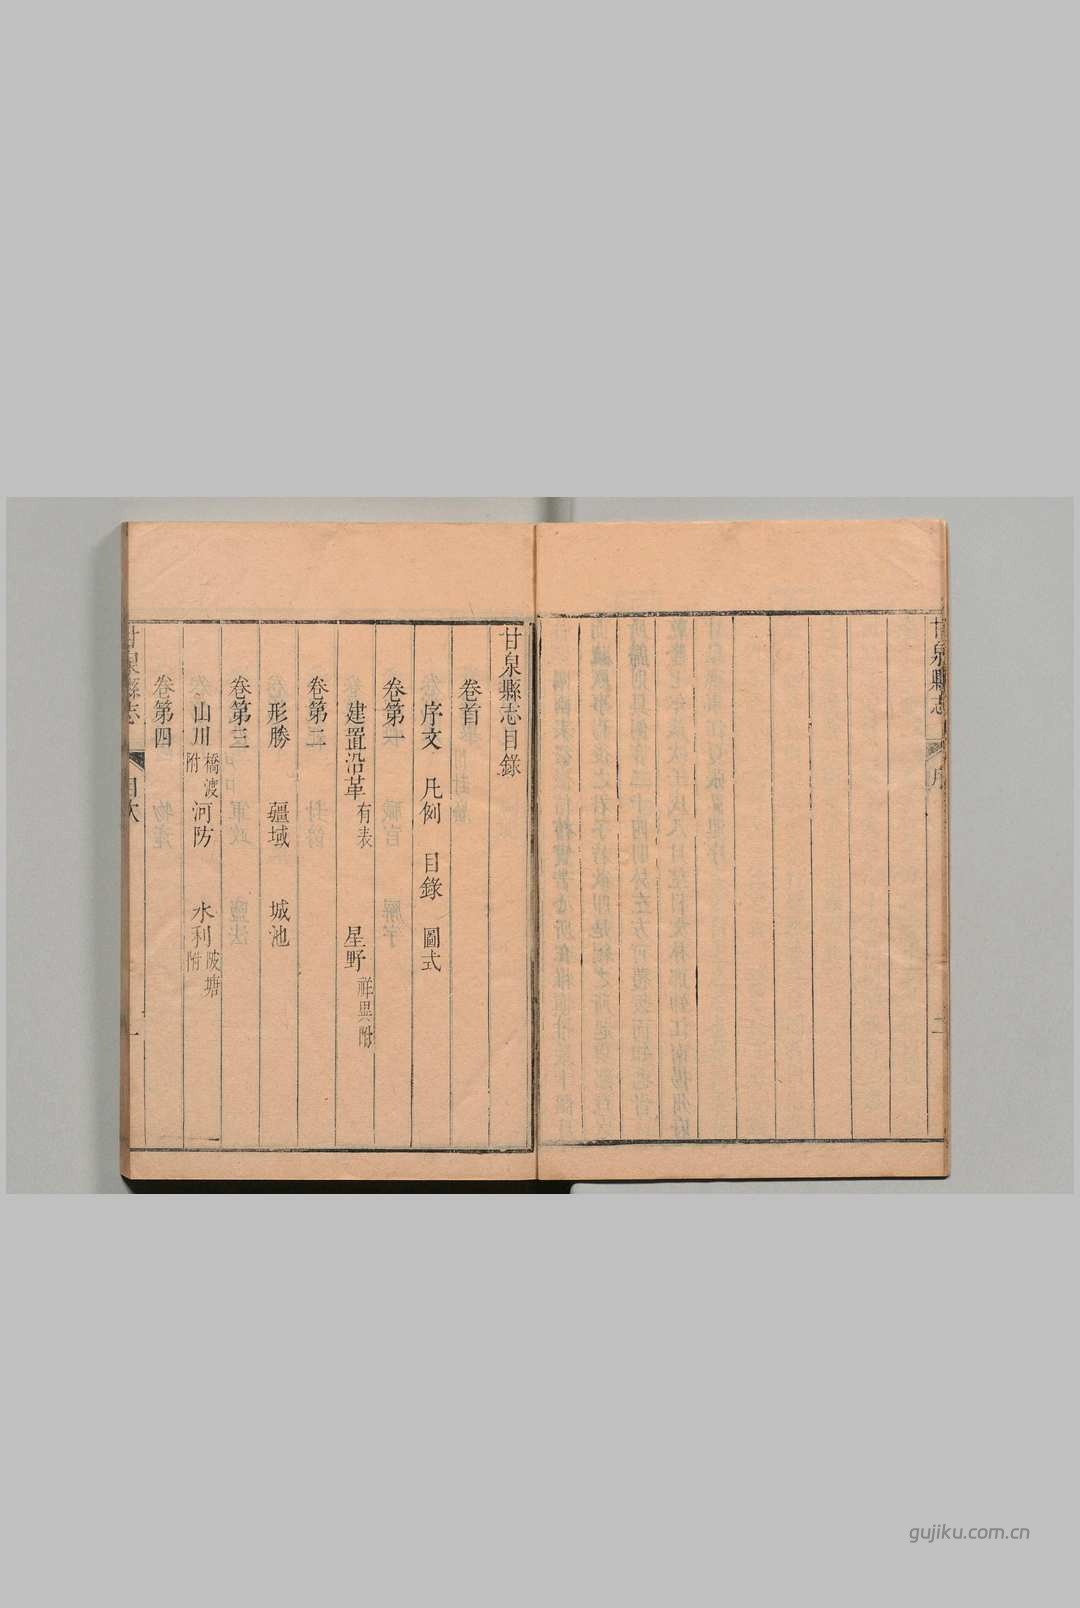 甘泉縣志
序
二
甘泉縣志目錄
卷首
序文 凡例 目錄 圖式
卷第一
建置沿革有表 星野祥異附
卷第二
形勝 疆域 城池
卷第三
山川橋渡附 河防 水利陂塘附
卷第四
甘泉縣志
目次
一
gujiku.com.cn